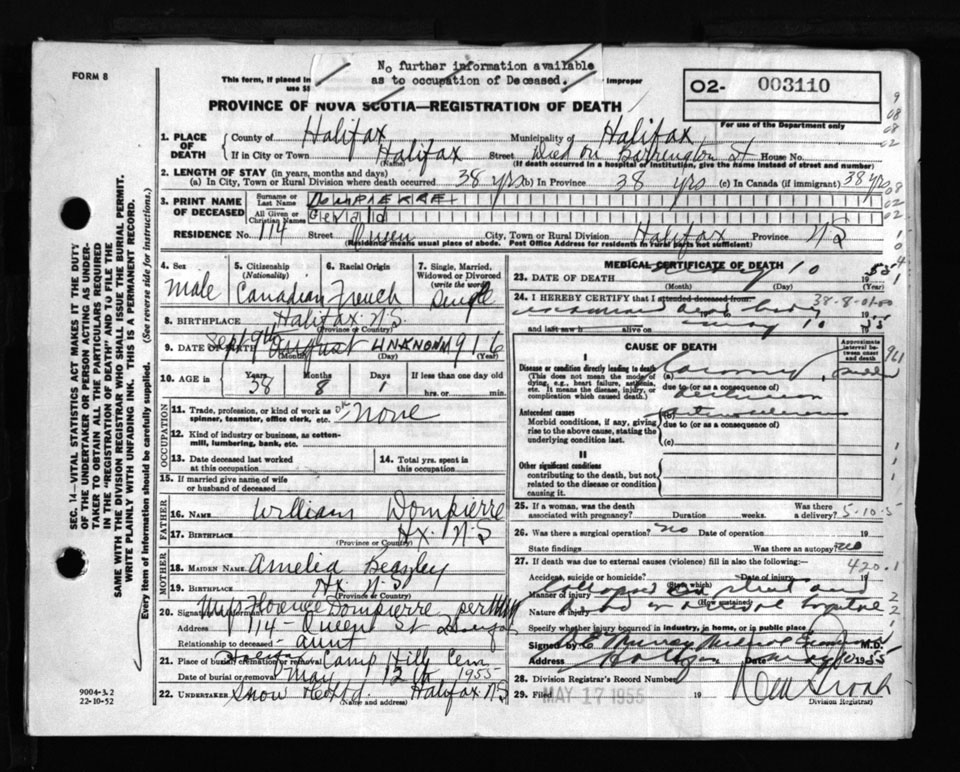 FORM 8
No further information available
as to occupation of Deceased.
This form, if placed in
improper
O2- 003110
PROVINCE OF NOVA SCOTIA—REGISTRATION OF DEATH
For use of the Department only
1. PLACE OF DEATH
County of Halifax Municipality of Halifax
If in City or Town Halifax Street Died on Barrington St House No.
(Name) (If death occurred in a hospital or institution, give the name instead of street and number)
2. LENGTH OF STAY (in years, months and days)
(a) In City, Town or Rural Division where death occurred 38 yrs (b) In Province 38 yrs (c) In Canada (if immigrant) 38 yrs
3. PRINT NAME OF DECEASED
Surname or Last Name DOMPIERRE
All Given or Christian Names Gerald
RESIDENCE No. 114 Street Queen City, Town or Rural Division Halifax Province NS
(Residence means usual place of abode. Post Office Address for residents in rural parts not sufficient)
4. Sex
Male
5. Citizenship (Nationality)
Canadian
6. Racial Origin
French
7. Single, Married, Widowed or Divorced (write the word)
Single
8. BIRTHPLACE Halifax N.S.
(Province or Country)
9. DATE OF BIRTH Sept 9th August UNKNOWN 1916
(Month) (Day) (Year)
10. AGE in Years 38 Months 8 Days 1 If less than one day old
hrs. or min.
OCCUPATION
11. Trade, profession, or kind of work as spinner, teamster, office clerk, etc. None
12. Kind of industry or business, as cotton-mill, lumbering, bank, etc.
13. Date deceased last worked at this occupation
14. Total yrs. spent in this occupation
15. If married give name of wife or husband of deceased
FATHER
16. NAME William Dompierre
17. BIRTHPLACE Hx. N-S
(Province or Country)
MOTHER
18. MAIDEN NAME Amelia Beazley
19. BIRTHPLACE Hx. N-S
(Province or Country)
20. Signature Florence Dompierre per
Address 114 - Queen St
Relationship to deceased aunt
21. Place of burial, cremation or removal Halifax Camp Hill Cem
Date of burial or removal May 12 1955
22. UNDERTAKER Snow & Co Ltd. Halifax NS
(Name and address)
MEDICAL CERTIFICATE OF DEATH
23. DATE OF DEATH 10 1955
(Month) (Day)
24. I HEREBY CERTIFY that I attended deceased from:
38-8-01-00
examined dead body
and last saw h alive on May 10 1955
CAUSE OF DEATH
Approximate interval between onset and death
I
Disease or condition directly leading to death
(This does not mean the mode of dying, e.g., heart failure, asthenia, etc. It means the disease, injury, or complication which caused death.)
(a) Coronary
due to (or as a consequence of)
Antecedent causes
Morbid conditions, if any, giving rise to the above cause, stating the underlying condition last.
due to (or as a consequence of)
(c)
II
Other significant conditions
contributing to the death, but not related to the disease or condition causing it.
25. If a woman, was the death associated with pregnancy? Duration weeks. Was there a delivery?
5-10-5
26. Was there a surgical operation? no Date of operation 19
State findings Was there an autopsy? no
27. If death was due to external causes (violence) fill in also the following:—
420.1
Accident, suicide or homicide? Date of injury 19
(State which)
Manner of injury Collapsed on street and
(How sustained)
Nature of injury
Specify whether injury occurred in industry, in home, or in public place
Signed by M.D.
Address Halifax Date May 10 1955
28. Division Registrar's Record Number
29. Filed MAY 17 1955 19
Division Registrar)
SEC. 14—VITAL STATISTICS ACT MAKES IT THE DUTY
OF THE UNDERTAKER OR PERSON ACTING AS UNDER-
TAKER TO OBTAIN ALL THE PARTICULARS REQUIRED
IN THE "REGISTRATION OF DEATH" AND TO FILE THE
SAME WITH THE DIVISION REGISTRAR WHO SHALL ISSUE THE BURIAL PERMIT.
WRITE PLAINLY WITH UNFADING INK. THIS IS A PERMANENT RECORD.
Every item of information should be carefully supplied. (See reverse side for instructions.)
9004-3.2
22-10-52